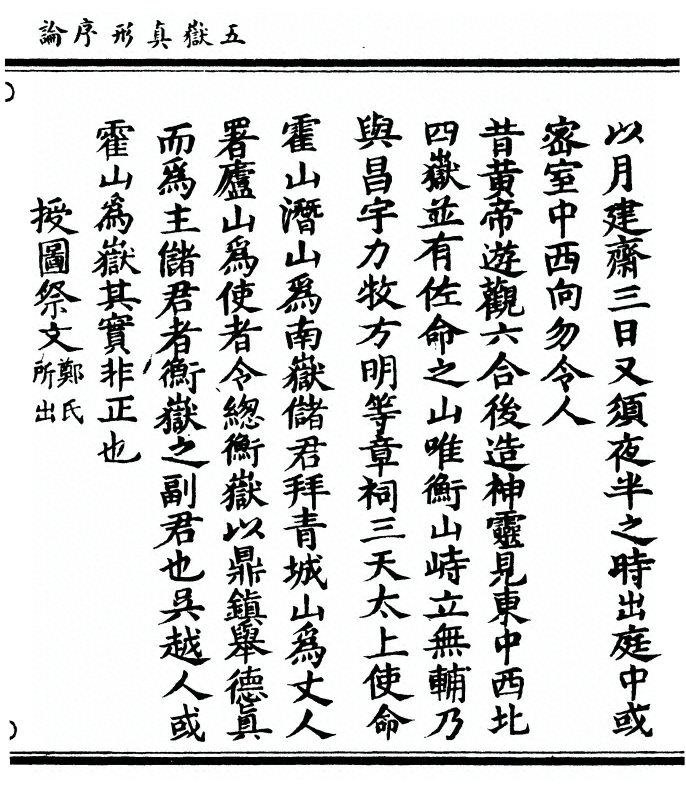 五嶽真形序論
以月建齋三日又須夜半之時出庭中或
密室中西向勿令人
昔黄帝遊觀六合後造神靈見東中西北
四嶽並有佐命之山唯衡山峙立無輔乃
與昌宇力牧方明等章祠三天太上使命
霍山潛山爲南嶽儲君拜青城山爲丈人
署廬山爲使者令總衡嶽以鼎鎮舉德真
而爲主儲君者衡嶽之副君也吳越人或
霍山爲嶽其實非正也
授圖祭文鄭氏所出